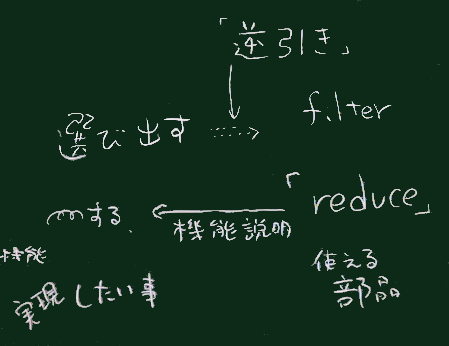 「逆引き」
選び出す
filter
「reduce」
する
機能説明
機能
実現したい事
使える
部品